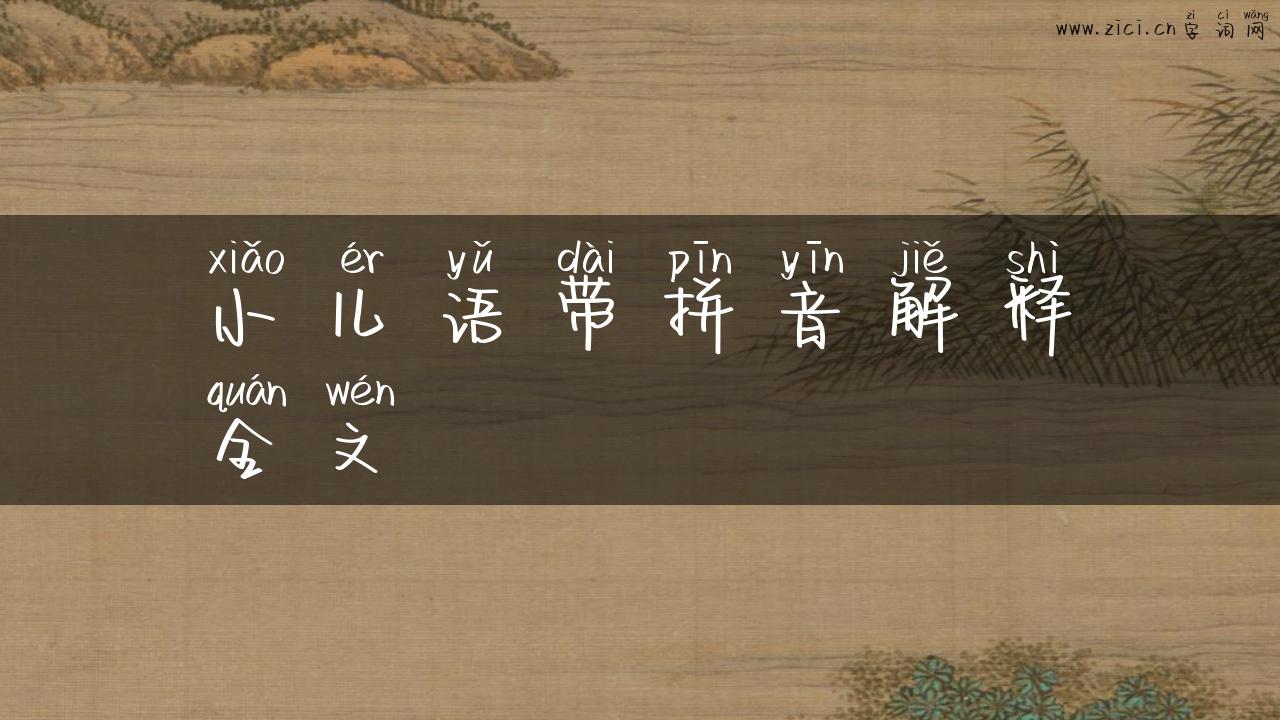 zì cí wǎng
www.zici.cn 字词网
xiǎo ér yǔ dài pīn yīn jiě shì
小儿语带拼音解释
quán wén
全文